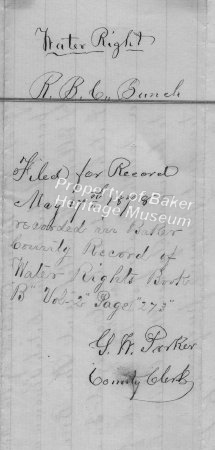 Water Right
R. B. C. Bunch
Filed for Record
May
Property of Baker
Heritage Museum
recorded in Baker
County Record of
Water Rights Book
"B" Vol "2" Page "273"
G. W. Parker
County Clerk